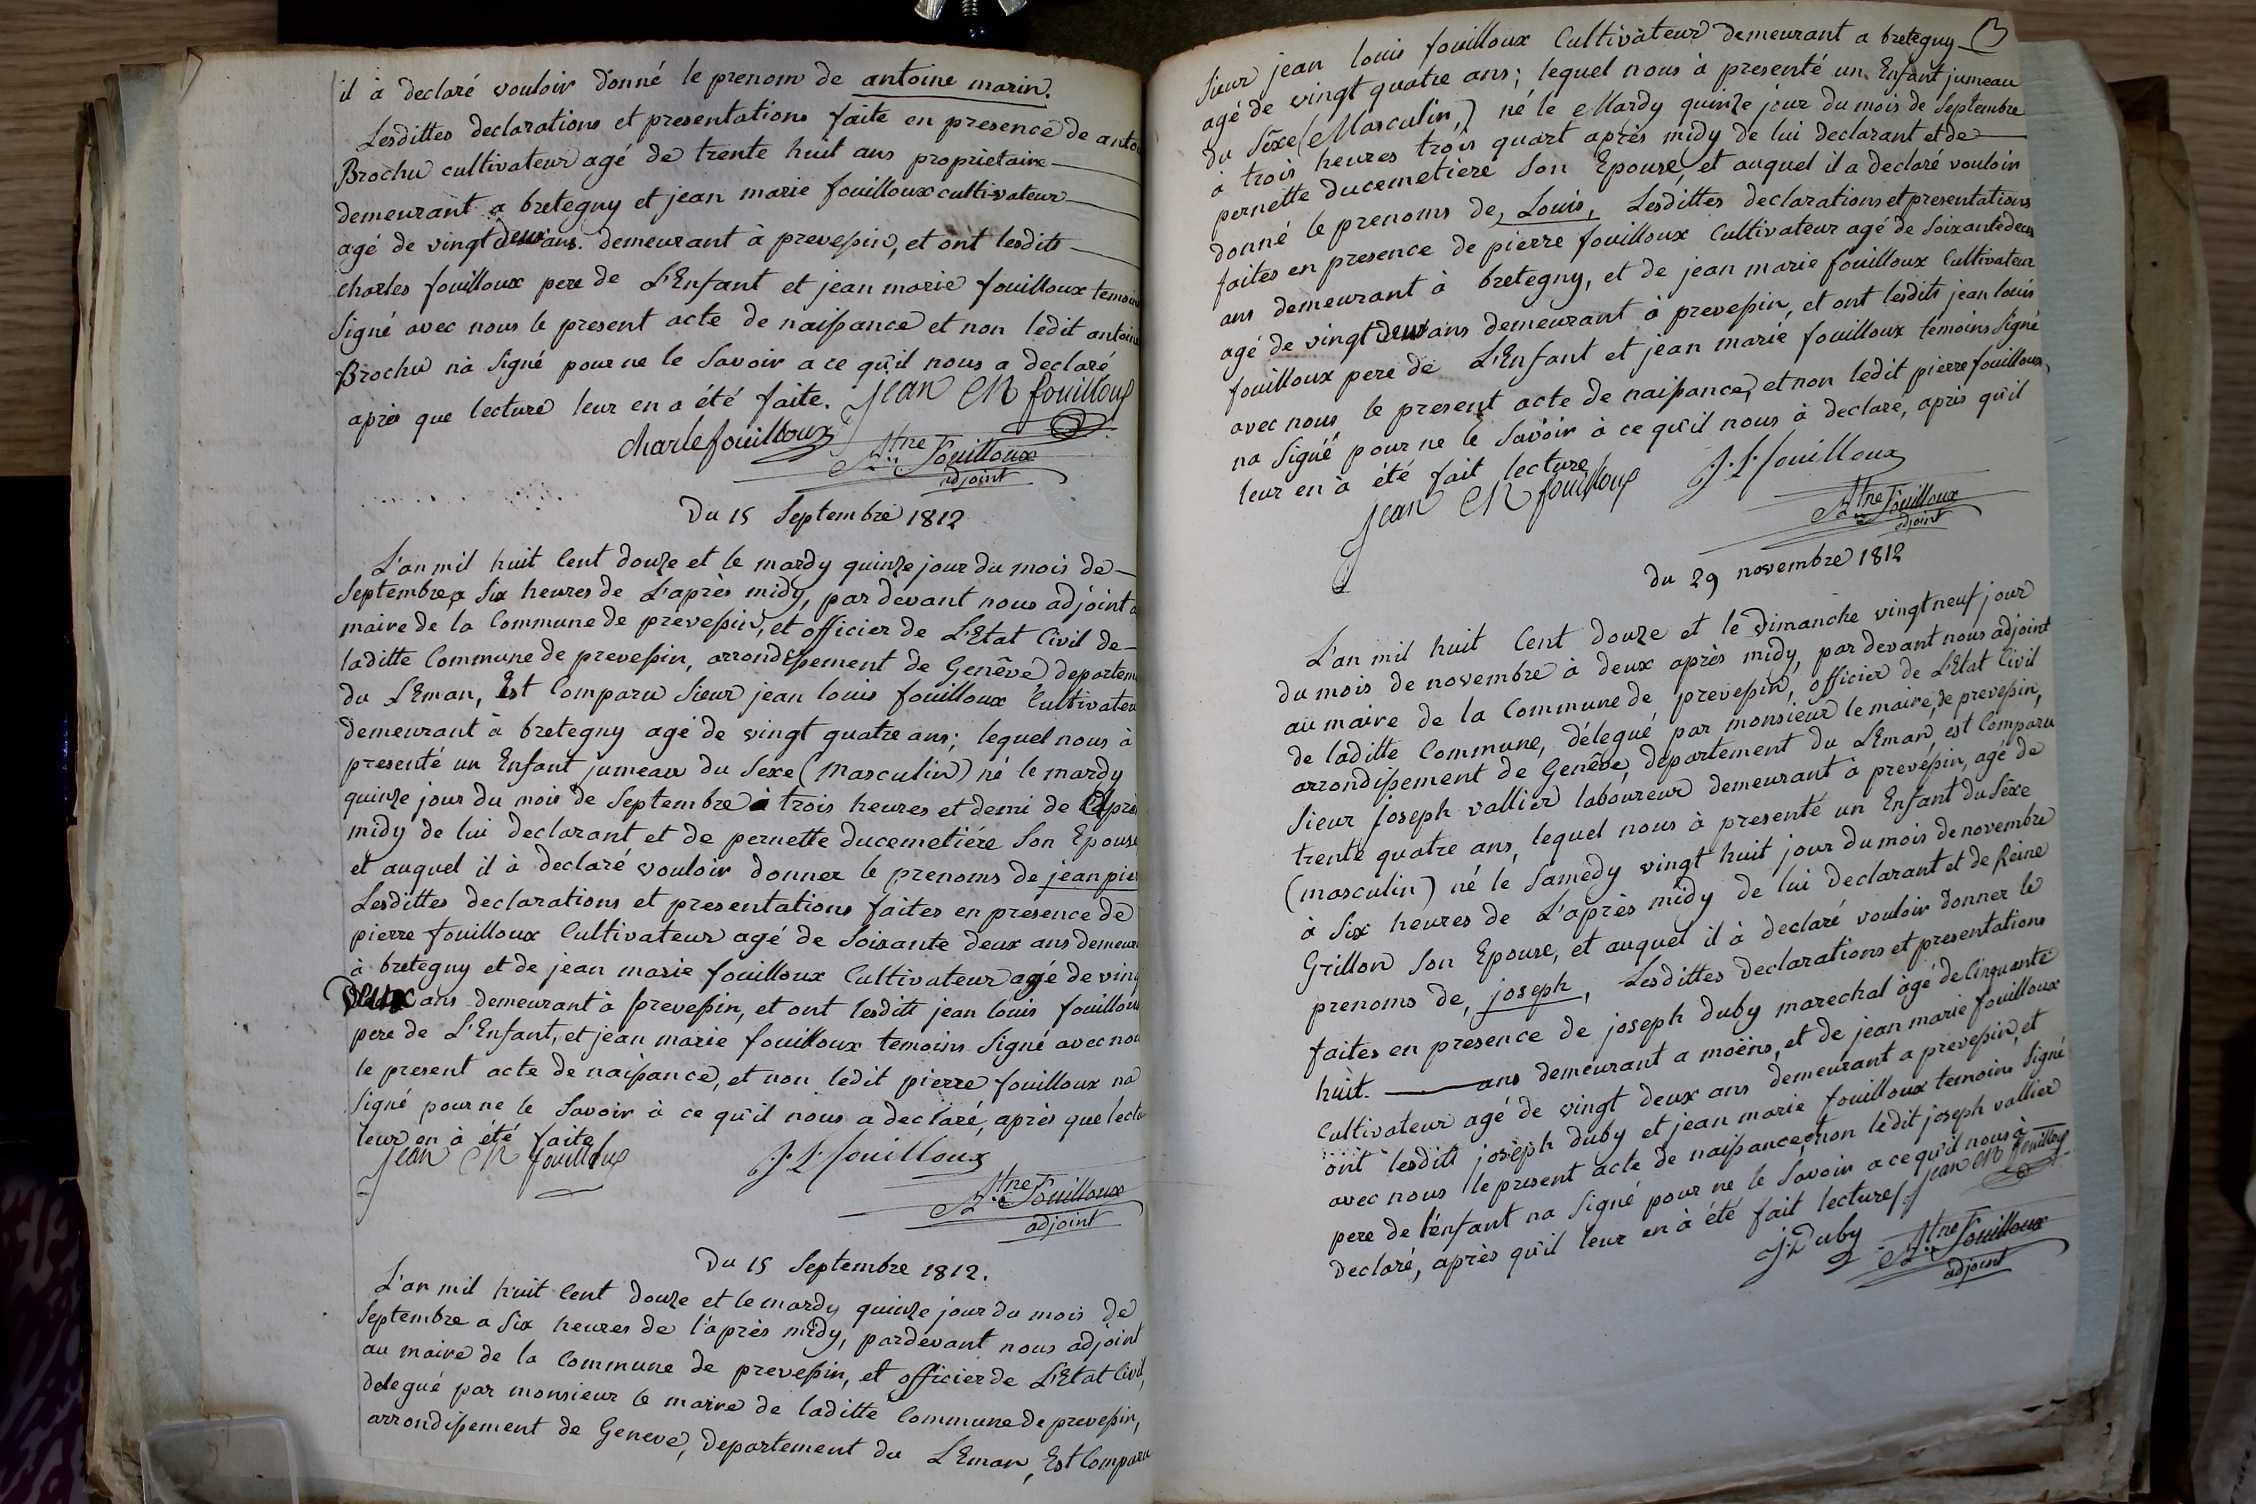 il à declaré vouloir donné le prenom de antoine marin.
Lesdittes declarations et presentations faite en presence de anto
Brochu cultivateur agé de trente huit ans proprietaire
demeurant a bretegny et jean marie fouilloux cultivateur
agé de vingt deux ans. demeurant à prevessin, et ont lesdits
charles fouilloux pere de L'Enfant et jean marie fouilloux temoin
Signé avec nous le present acte de naissance et non ledit antoin
Brochu nà Signé pour ne le Savoir a ce qu'il nous a declaré
après que lecture leur en a été faite. jean M fouilloux
charle fouilloux
Atne Fouilloux
adjoint
Du 15 Septembre 1812
L'an mil huit Cent douze et le mardy quinze jour du mois de
Septembre, a Six heures de L'après midy, par devant nous adjoint a
maire de la Commune de prevessin, et officier de L'Etat Civil de
laditte Commune de prevessin, arrondissement de Genêve departem
du LEman, Est Comparu Sieur jean louis fouilloux Cultivateu
demeurant à bretegny agé de vingt quatre ans; lequel nous à
presenté un Enfant jumeau du Sexe (Masculin) né le mardy
quinze jour du mois de Septembre à trois heures et demi de L'après
midy de lui declarant et de pernette ducemetiére Son Epouse
et auquel il à declaré vouloir donner le prenoms de jean pier
Lesdittes declarations et presentations faites en presence de
pierre fouilloux Cultivateur agé de Soixante deux ans demeura
à bretegny et de jean marie fouilloux Cultivateur agé de ving
Deux ans demeurant à prevessin, et ont lesdits jean louis fouillou
pere de L'Enfant, et jean marie fouilloux temoins Signé avec nou
le present acte de naissance, et non ledit pierre fouilloux na
Signé pour ne le Savoir à ce qu'il nous a declaré, après que lectu
leur en à été faite
jean M fouilloux J. L. fouilloux
Atne Fouilloux
adjoint
Du 15 Septembre 1812.
L'an mil huit Cent douze et le mardy quinze jour du mois de
Septembre a Six heures de l'après midy, pardevant nous adjoint
au maire de la Commune de prevessin, et officier de L'Etat Civil,
delegué par monsieur le maire de laditte Commune de prevessin,
arrondissement de Geneve, Departement du LEman, Est Comparu
Sieur jean louis fouilloux Cultivateur demeurant a bretegny
agé de vingt quatre ans; lequel nous à presenté un Enfant jumeau
du Sèxe (Masculin,) né le Mardy quinze jour du mois de Septembre
à trois heures trois quart après midy de lui declarant et de
pernette ducemetiére Son Epouse, et auquel il a declaré vouloir
donné le prenoms de, Louis, Lesdittes declarations et presentations
faites en presence de pierre fouilloux Cultivateur agé de Soixante deux
ans demeurant à bretegny, et de jean marie fouilloux Cultivateur
agé de vingt deux ans demeurant à prevessin, et ont lesdits jean louis
fouilloux pere de L'Enfant et jean marie fouilloux temoins Signé
avec nous le present acte de naissance, et non ledit pierre fouilloux,
na Signé pour ne le Savoir à ce qu'il nous à declaré, après qu'il
leur en à été fait lecture
jean M fouilloux J. L. fouilloux
Atne Fouilloux
adjoint
du 29 novembre 1812
L'an mil huit Cent douze et le Dimanche vingt neuf jour
du mois de novembre à deux après midy, par devant nous adjoint
au maire de la Commune de prevessin, officier de L'Etat Civil
de laditte Commune, délegué par monsieur le maire, de prevessin,
arrondissement de Genêve, departement du LEman est Comparu
Sieur Joseph vallier laboureur demeurant à prevéssin, agé de
trente quatre ans, lequel nous à presenté un Enfant du Sèxe
(masculin) né le Samedy vingt huit jour du mois de novembre
à Six heures de L'après midy de lui declarant et de Reine
Grillon Son Epouse, et auquel il à declaré vouloir donner le
prenoms de, joseph, Lesdittes declarations et presentations
faites en presence de joseph duby marechal âgé de Cinquante
huit. ans demeurant a moëns, et de jean marie fouilloux
Cultivateur agé de vingt deux ans demeurant a prevessin, et
ont lesdits joseph duby et jean marie fouilloux temoins Signé
avec nous le present acte de naissance, et non ledit joseph vallier
pere de l'énfant na Signé pour ne le Savoir a ce qu'il nous à
declaré, après qu'il leur en à été fait lecture. jean M fouilloux
J. Duby
Atne Fouilloux
adjoint